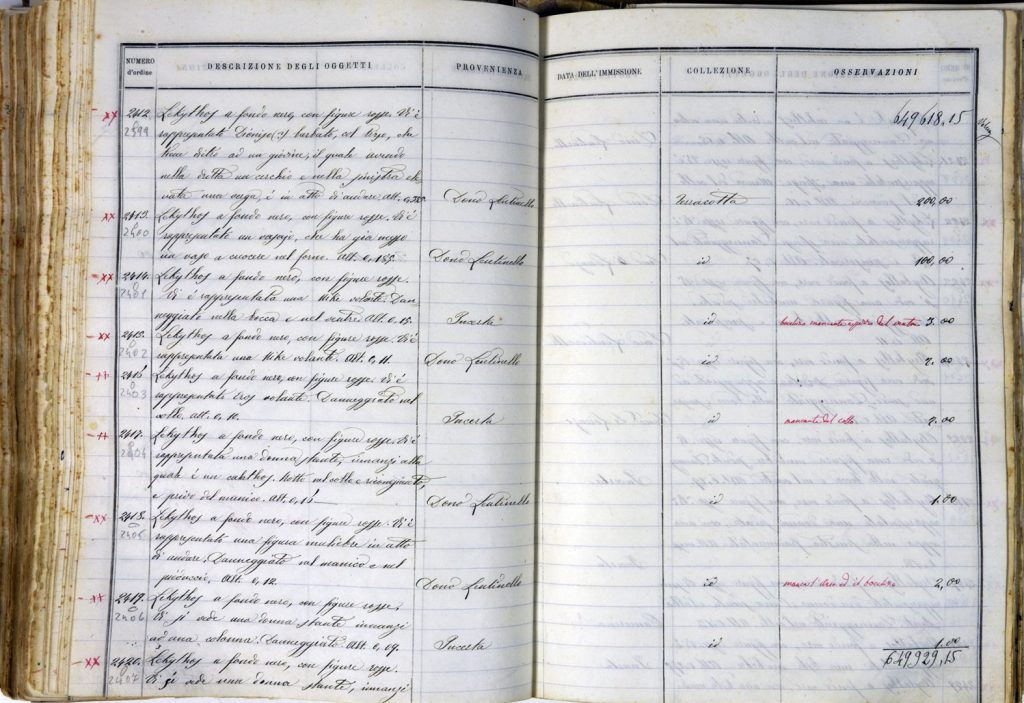 NUMERO d'ordine DESCRIZIONE DEGLI OGGETTI PROVENIENZA DATA DELL'IMMISSIONE COLLEZIONE OSSERVAZIONI
649618,15
xx 2412. Lekythos a fondo nero, con figure rosse. Vi è
2399 rappresentato Dionijo (?) barbato, col tirso, che
ad un giovine, il quale avendo
nella dritta un cerchio e nella sinistra
una verga, è in atto di andare. Alt. Dono Lentinello Terracotta 200,00
xx 2413. Lekythos a fondo nero, con figure rosse. Vi è
2400 rappresentato un vasajo, che ha già messo
un vaso a cuocere nel forno. Alt. 0,155. Dono Lentinello id 100,00
xx 2414. Lekythos a fondo nero, con figure rosse.
2401 Vi è rappresentata una Nike volante. Dan-
neggiato nella bocca e nel ventre. Alt. 0,15. Incerta id 3.00
xx 2415. Lekythos a fondo nero, con figure rosse. Vi è
2402 rappresentata una Nike volante. Alt. 0,11. Dono Lentinello id 2.00
Lekythos a fondo nero, con figure rosse. Vi è
2403 rappresentato Eros volante. Danneggiato nel
collo. Alt. 0,10. Incerta id mancante del collo 2.00
2417. Lekythos a fondo nero, con figure rosse. Vi è
2404 rappresentata una donna stante, innanzi alla
quale è un calathos. Rotto nel collo e ricongiunto,
e privo del manico. Alt. 0,15 Dono Lentinello id 1.00
xx 2418. Lekythos a fondo nero, con figure rosse. Vi è
2405 rappresentata una figura muliebre in atto
di andare. Danneggiato nel manico e nel
Alt. 0,12. Dono Lentinello id 2,00
xx 2419. Lekythos a fondo nero, con figure rosse.
2406 Vi si vede una donna stante innanzi
ad una colonna. Danneggiato. Alt. 0,09. Incerta id 1.00
649929,15
xx 2420. Lekythos a fondo nero, con figure rosse.
2407 Vi si vede una donna stante, innanzi